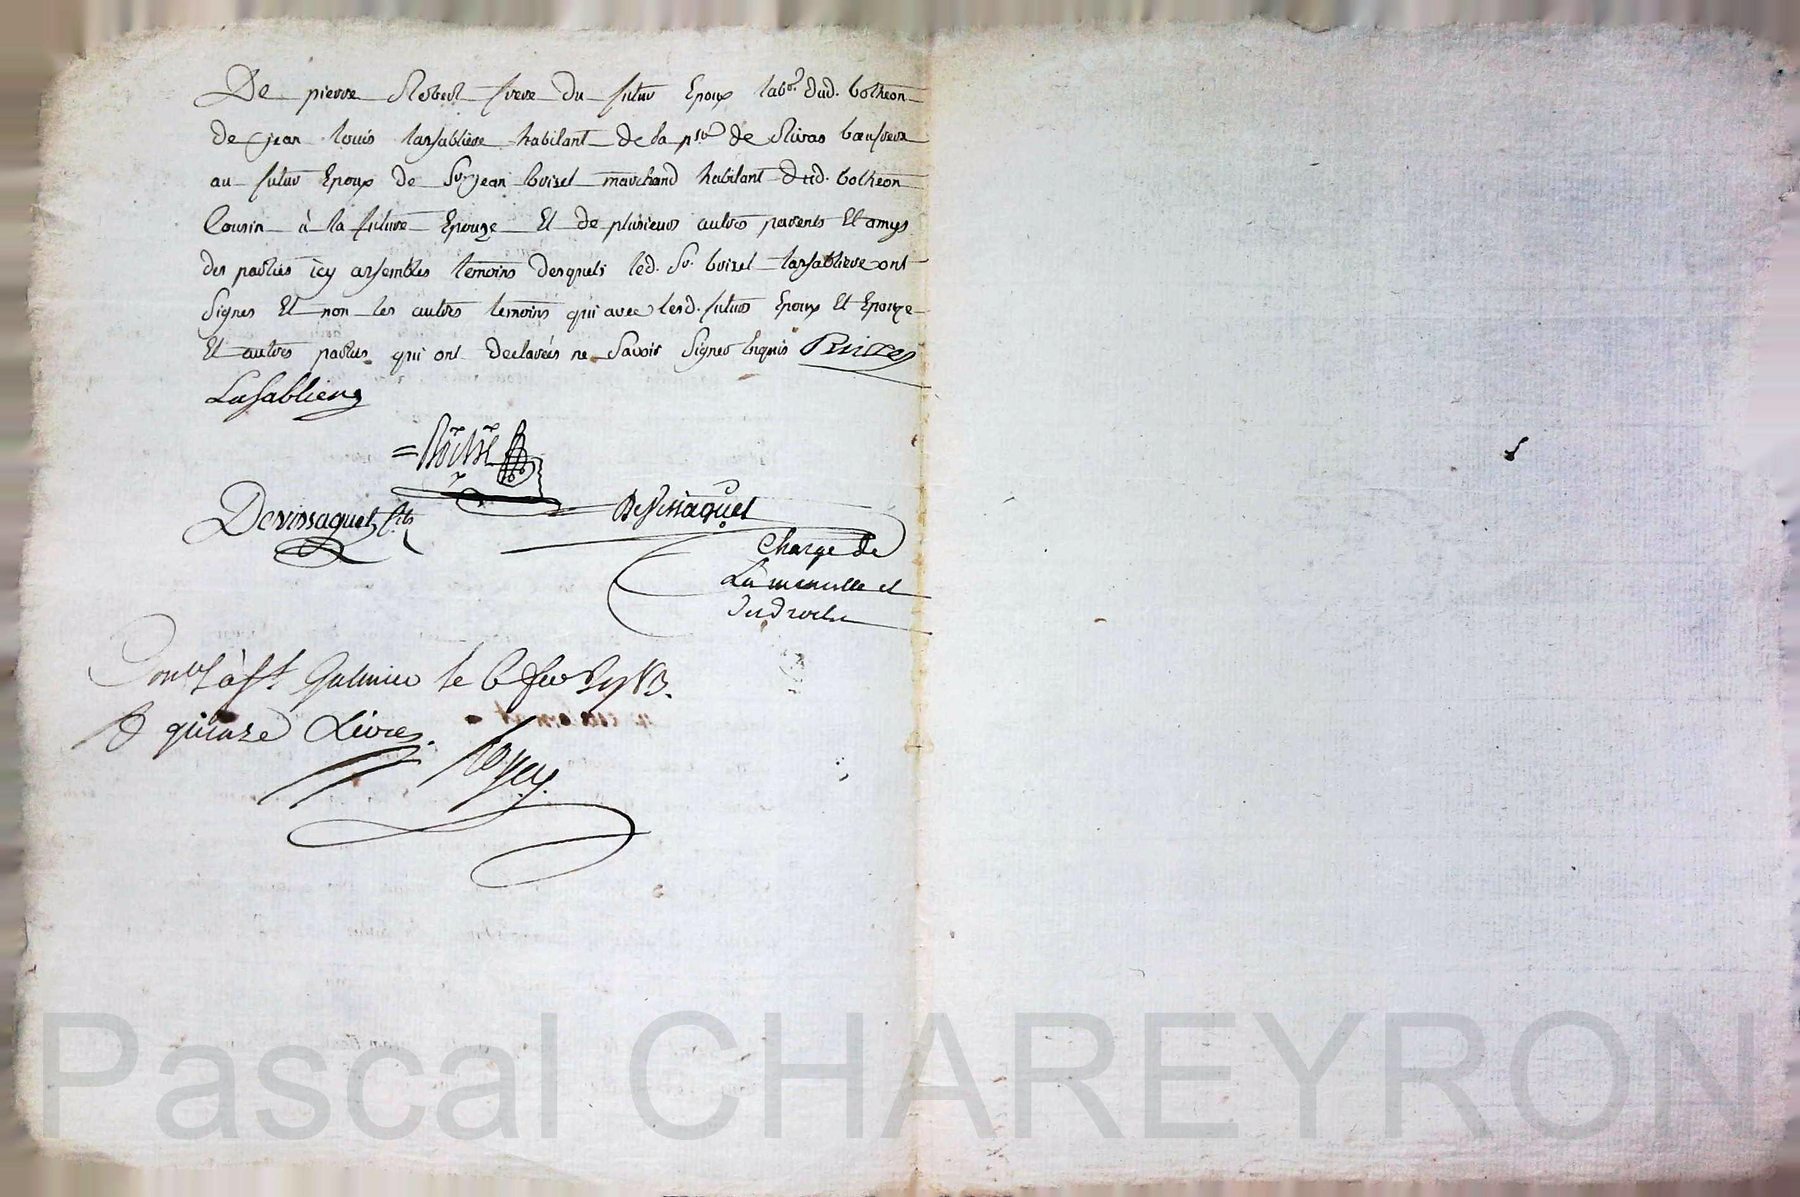 De pierre Robert frere du futur Epoux labor. dud. botheon
de jean louis lassabliere habitant de la psse de Rivas beaufrere
au futur Epoux de Sr jean buisel marchand habitant dud. botheon
Cousin à la future Epouze Et de plusieurs autres parents Et amys
des parties icy assembles temoins desquels led. Sr. buisel lassabliere ont
signes Et non les autres temoins qui avec lesd. futurs Epoux Et Epouze
Et autres parties qui ont declarées ne savoir signer Enquis
Lasabliere
Devissaguet fils
Devissaguet
Charge de
La minutte et
des droits
à St. Galmier le 6 fev
quinze Livres.
Pascal CHAREYRON